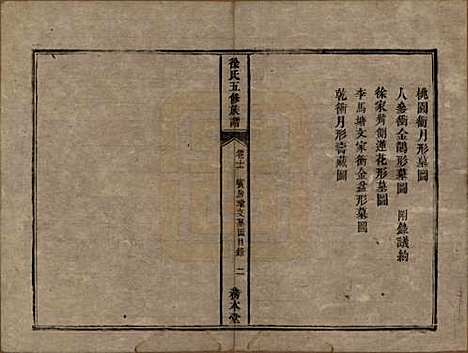 桃園衝月形墓圖
人參衝金鵝形墓圖 附錄議約
徐家灣側蓮花形墓圖
李馬塘文家衝金盆形墓圖
乾衝月形壽藏圖
徐氏五修族譜
卷十二
墓圖目錄 二
務本堂